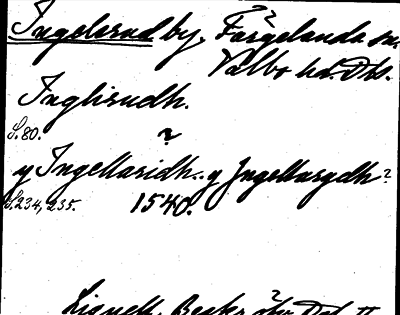 Ingelsrud by, Färgelanda sn.
?
Valbo hd. Dls.
Inglisrudh.
S. 80.
?
y Ingellaridh.. y Jngellarydh?
S. 234, 235. 1540.
Lignell, Beskr. över Dal II